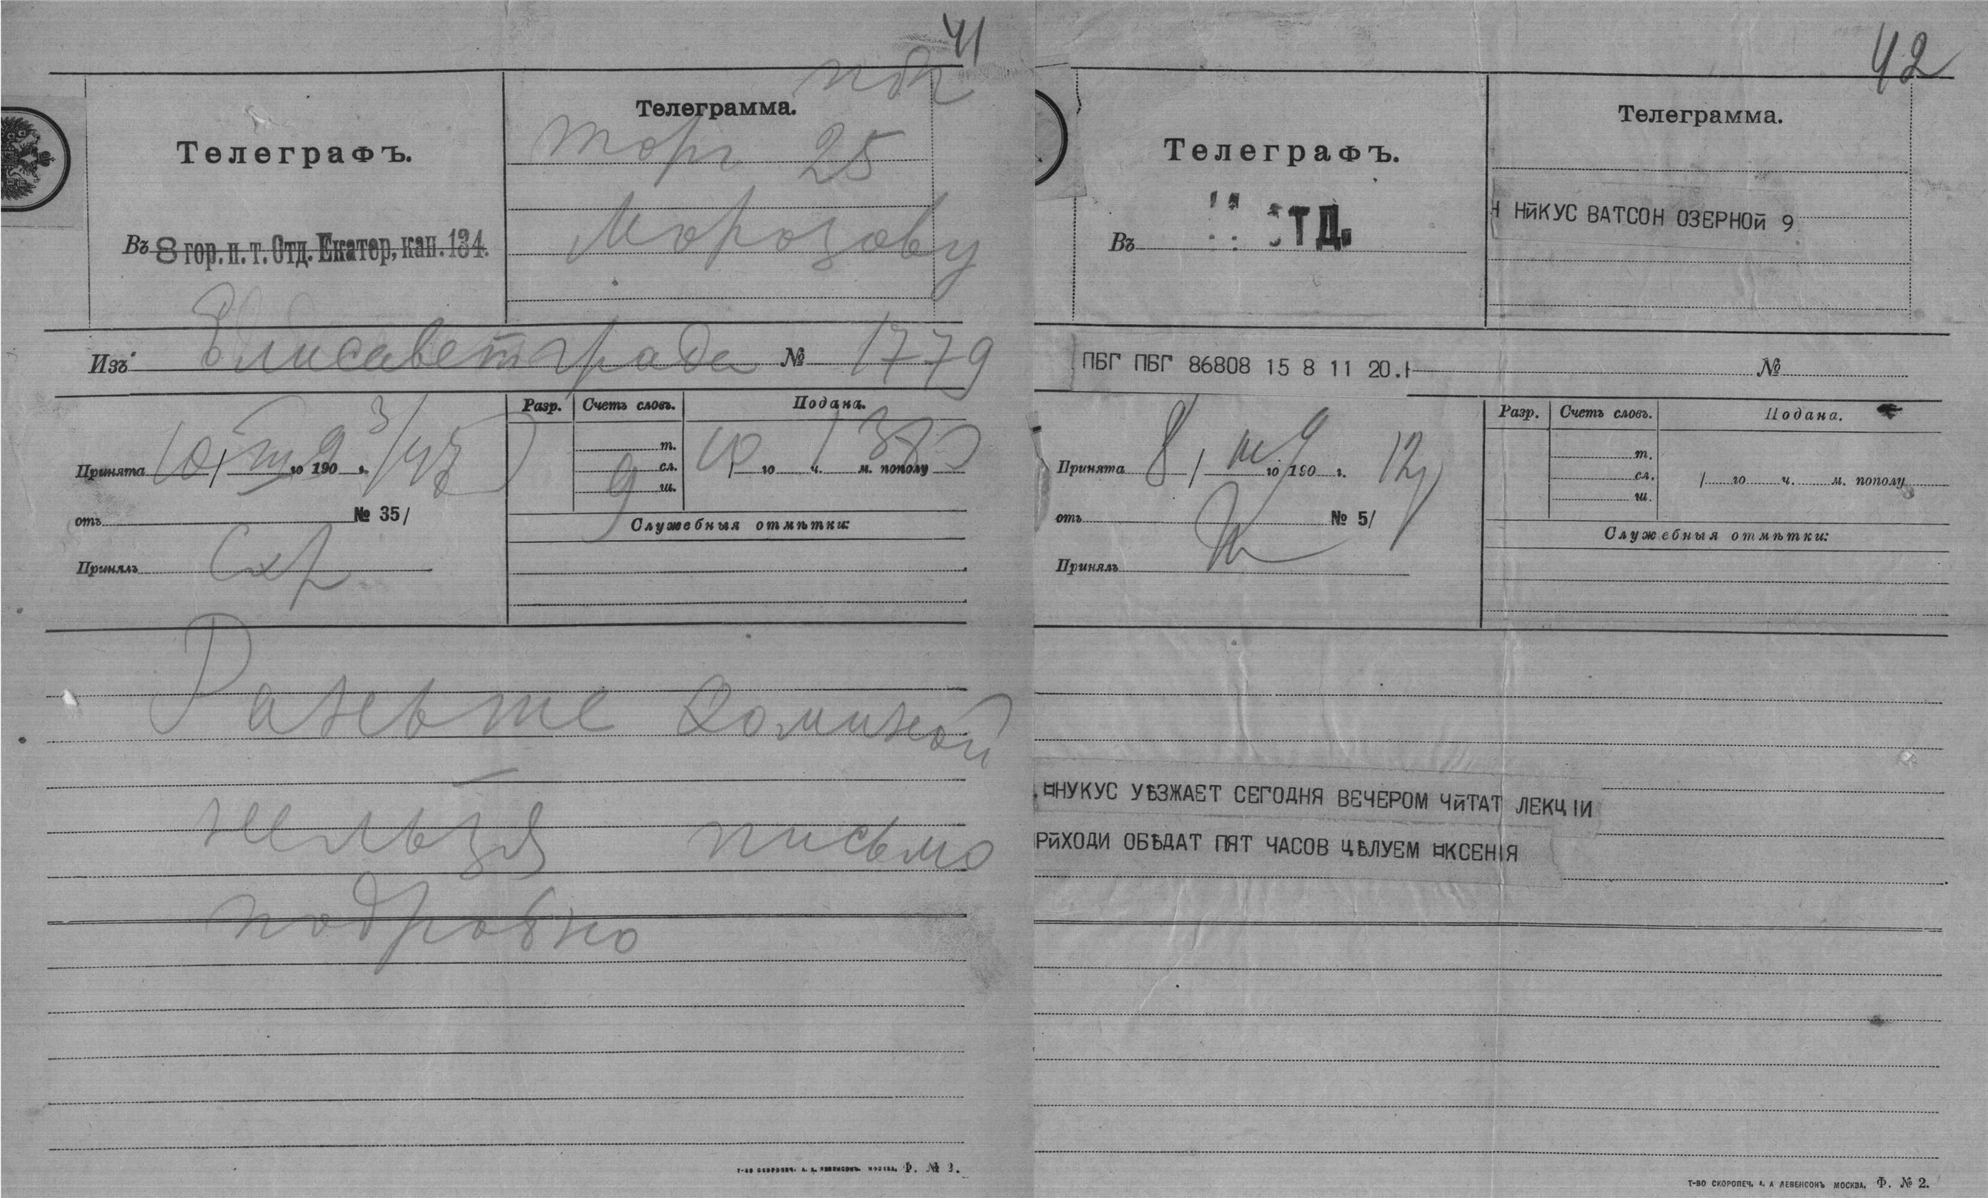 41
пбг
Телеграфъ.
Телеграмма.
торг 25
Морозову
Въ 8 гор. п. т. Отд. Екатер, кан. 134.
Изъ Елисаветграда № 1779
Разр. Счетъ словъ. Подана.
Принята 10/III 9 го 190 г.
9 т. сл. ш.
10 / го ч. м. пополу
отъ № 35/
Служебныя отмѣтки:
Принялъ
Раньше Фоминой
нельзя письмо
подробно
Т-во скоропеч. А. А. Левенсонъ. Москва. Ф. № 2.
42
Телеграфъ.
Телеграмма.
Въ ОТД.
НйКУС ВАТСОН ОЗЕРНОй 9
ПБГ ПБГ 86808 15 8 11 20.Н
№
Разр. Счетъ словъ. Подана.
Принята 8 / III 9 го 190 г. 12
т.
сл.
ш.
/ го ч. м. пополу
отъ № 5/
Служебныя отмѣтки:
Принялъ
¤НУКУС УѢЗЖАЕТ СЕГОДНЯ ВЕЧЕРОМ ЧйТАТ ЛЕКЦІИ
РйХОДИ ОБѢДАТ ПЯТ ЧАСОВ ЦѢЛУЕМ ¤КСЕНІЯ
Т-ВО СКОРОПЕЧ. А. А ЛЕВЕНСОНЪ МОСКВА. Ф. № 2.